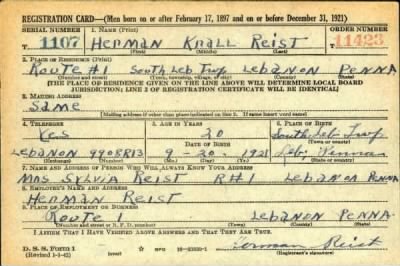 REGISTRATION CARD—(Men born on or after February 17, 1897 and on or before December 31, 1921)
SERIAL NUMBER 1. NAME (Print) ORDER NUMBER
T 1107 Herman Knall Reist 11423
(First) (Middle) (Last)
2. PLACE OF RESIDENCE (Print)
Route #1 South Leb Twp Lebanon Penna
(Number and street) (Town, township, village, or city) (County) (State)
[THE PLACE OF RESIDENCE GIVEN ON THE LINE ABOVE WILL DETERMINE LOCAL BOARD
JURISDICTION; LINE 2 OF REGISTRATION CERTIFICATE WILL BE IDENTICAL]
3. MAILING ADDRESS
Same
[Mailing address if other than place indicated on line 2. If same insert word same]
4. TELEPHONE 5. AGE IN YEARS 6. PLACE OF BIRTH
Yes 20 South Leb Twp
DATE OF BIRTH (Town or county)
Lebanon 9908R13 9-20-1921 Leb, Penna
(Exchange) (Number) (Mo.) (Day) (Yr.) (State or country)
7. NAME AND ADDRESS OF PERSON WHO WILL ALWAYS KNOW YOUR ADDRESS
Mrs Sylvia Reist R#1 Lebanon Penna
8. EMPLOYER'S NAME AND ADDRESS
Herman Reist
9. PLACE OF EMPLOYMENT OR BUSINESS
Route 1 Lebanon Penna.
(Number and street or R. F. D. number) (Town) (County) (State)
I AFFIRM THAT I HAVE VERIFIED ABOVE ANSWERS AND THAT THEY ARE TRUE.
D. S. S. Form 1
(Revised 1-5-42) (over) Herman Reist
(Registrant's signature)